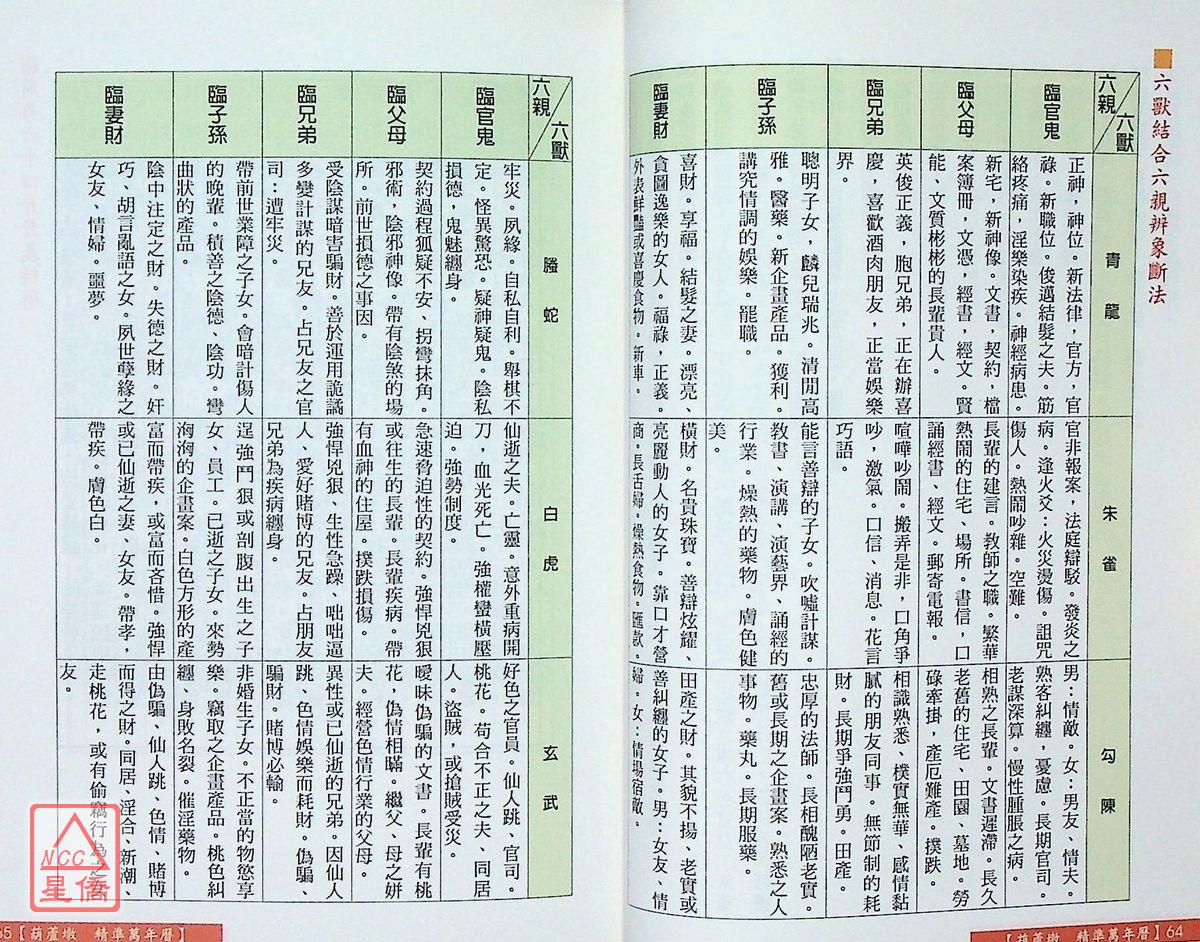 六獸結合六親辨象斷法
六獸
六親
臨官鬼
臨父母
臨兄弟
臨子孫
臨妻財
青龍
正神,神位。新法律,官方,官
祿。新職位。俊邁結髮之夫。筋
絡疼痛,淫樂染疾。神經病患。
新宅,新神像。文書,契約,檔
案簿冊,文憑,經書,經文。賢
能、文質彬彬的長輩貴人。
英俊正義,胞兄弟,正在辦喜
慶,喜歡酒肉朋友,正當娛樂
界。
聰明子女,麟兒瑞兆。清閒高
雅。醫藥。新企畫產品。獲利。
講究情調的娛樂。罷職。
喜財。享福。結髮之妻。漂亮、
貪圖逸樂的女人。福祿,正義。
外表鮮豔或喜慶食物。新車。
朱雀
官非報案,法庭辯駁。發炎之
病。逢火爻:火災燙傷。詛咒
傷人。熱鬧吵雜。空難。
長輩的建言。教師之職。繁華
熱鬧的住宅、場所。書信,口
誦經書、經文。郵寄電報。
喧嘩吵鬧。搬弄是非,口角爭
吵,激氣。口信、消息。花言
巧語。
能言善辯的子女。吹噓計謀。
教書、演講、演藝界、誦經的
行業。燥熱的藥物。膚色健
美。
橫財。名貴珠寶。善辯炫耀、
亮麗動人的女子。靠口才營
商。長舌婦。燥熱食物。匯款。
勾陳
男:情敵。女:男友、情夫。
熟客糾纏,憂慮。長期官司。
老謀深算。慢性腫脹之病。
相熟之長輩。文書遲滯。長久
老舊的住宅、田園、墓地。勞
碌牽掛,產厄難產。撲跌。
相識熟悉、樸實無華、感情黏
膩的朋友同事。無節制的耗
財。長期爭強鬥勇。田產。
忠厚的法師。長相醜陋老實。
舊或長期之企畫案。熟悉之人
事物。藥丸。長期服藥。
田產之財。其貌不揚、老實或
善糾纏的女子。男:女友、情
婦。女:情場宿敵。
【葫蘆墩 精準萬年曆】64
六獸
六親
臨官鬼
臨父母
臨兄弟
臨子孫
臨妻財
螣蛇
牢災。夙緣。自私自利。舉棋不
定。怪異驚恐。疑神疑鬼。陰私
損德,鬼魅纏身。
契約過程狐疑不安、拐彎抹角。
邪術,陰邪神像。帶有陰煞的場
所。前世損德之事因。
受陰謀暗害騙財。善於運用詭譎
多變計謀的兄友。占兄友之官
司:遭牢災。
帶前世業障之子女。會暗計傷人
的晚輩。積善之陰德、陰功。彎
曲狀的產品。
陰中注定之財。失德之財。奸
巧、胡言亂語之女。夙世孽緣之
女友、情婦。噩夢。
白虎
仙逝之夫。亡靈。意外重病開
刀,血光死亡。強權蠻橫壓
迫。強勢制度。
急速脅迫性的契約。強悍兇狠
或往生的長輩。長輩疾病。帶
有血神的住屋。撲跌損傷。
強悍兇狠、生性急躁、咄咄逼
人、愛好賭博的兄友。占朋友
兄弟為疾病纏身。
逞強鬥狠或剖腹出生之子
女、員工。已逝之子女。來勢
洶洶的企畫案。白色方形的產
富而帶疾,或富而吝惜。強悍
或已仙逝之妻、女友。帶孝,
帶疾。膚色白。
玄武
好色之官員。仙人跳、官司。
桃花。苟合不正之夫、同居
人。盜賊,或搶賊受災。
曖昧偽騙的文書。長輩有桃
花,偽情相瞞。繼父、母之姘
夫。經營色情行業的父母。
異性或已仙逝的兄弟。因仙人
跳、色情娛樂而耗財。偽騙、
騙財。賭博必輸。
非婚生子女。不正當的物慾享
樂。竊取之企畫產品。桃色糾
纏、身敗名裂。催淫藥物。
由偽騙、仙人跳、色情、賭博
而得之財。同居、淫合、新潮、
走桃花,或有偷竊行為之女
友。
65【葫蘆墩 精準萬年曆】
NCC
星僑